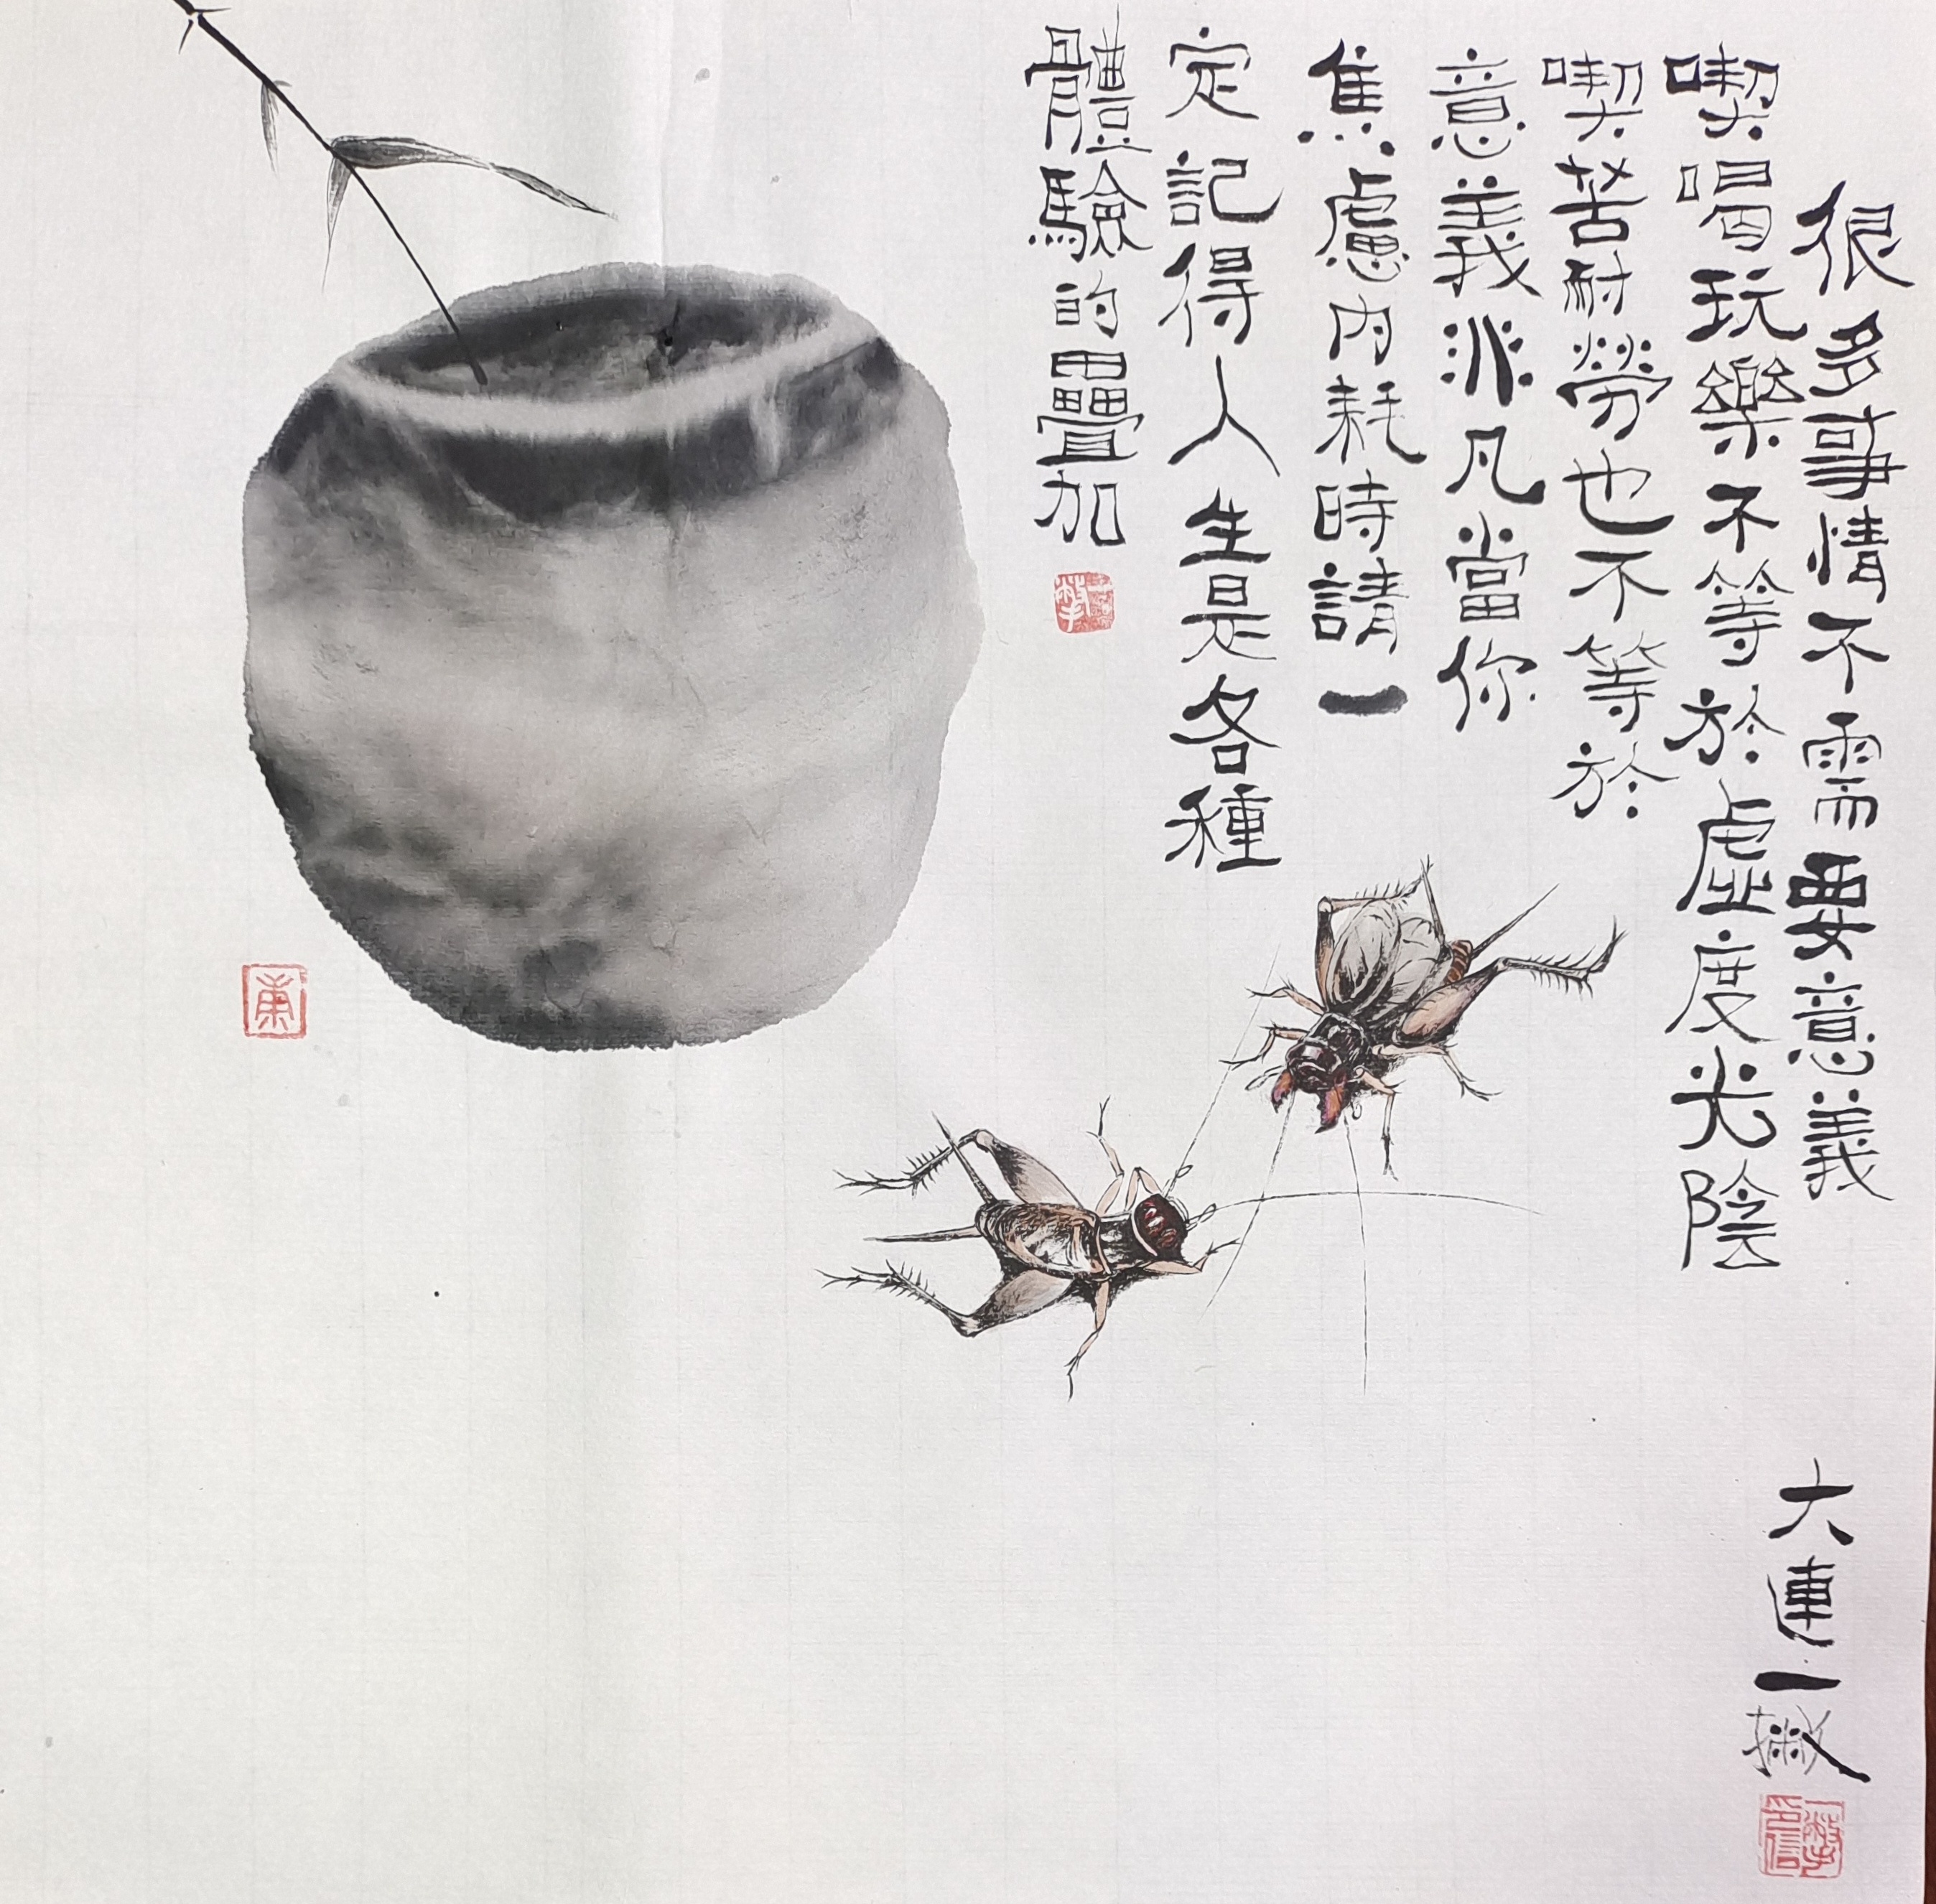 很多事情不需要意義
喫喝玩樂不等於虛度光陰
喫苦耐勞也不等於
意義非凡當你
焦慮內耗時請一
定記得人生是各種
體驗的疊加
大連一撇